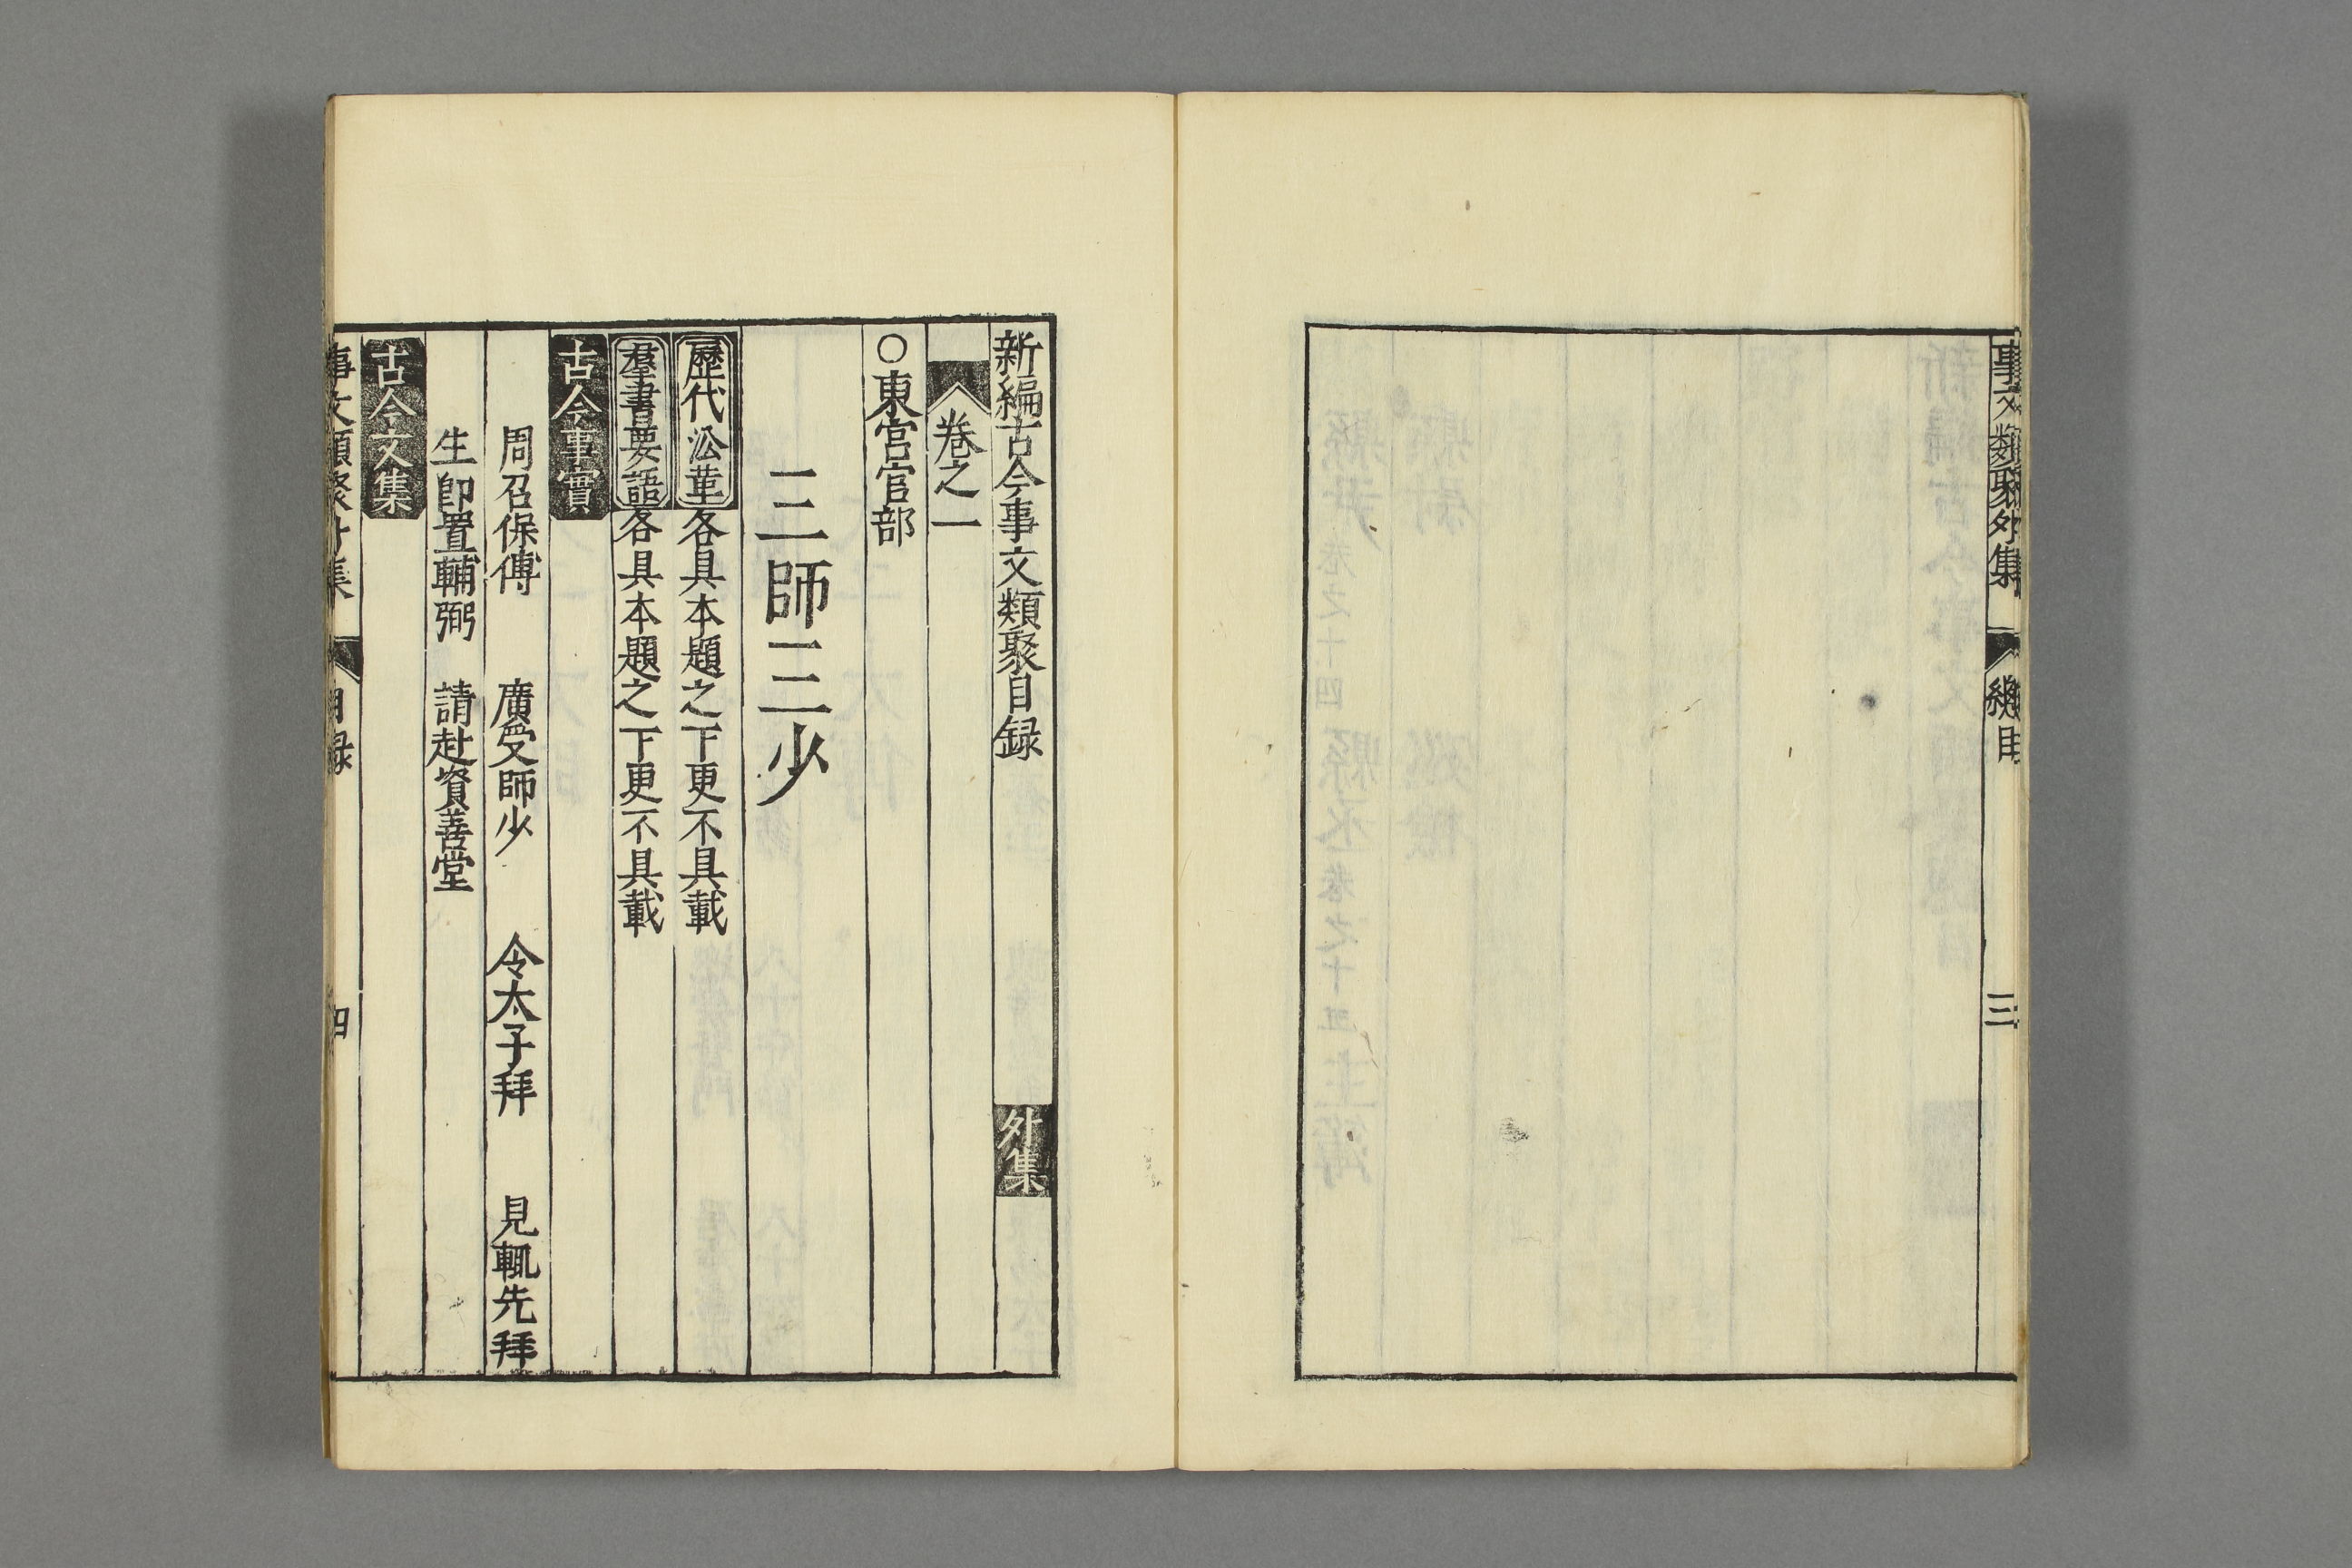 事文類聚外集 總目 三
新編古今事文類聚目録 外集
卷之一
○東宮官部
三師三少
歷代沿革各具本題之下更不具載
羣書要語各具本題之下更不具載
古今事實
周召保傅 廣受師少 令太子拜 見輒先拜
生卽置輔弼 請赴資善堂
古今文集
事文類聚外集 目録 四